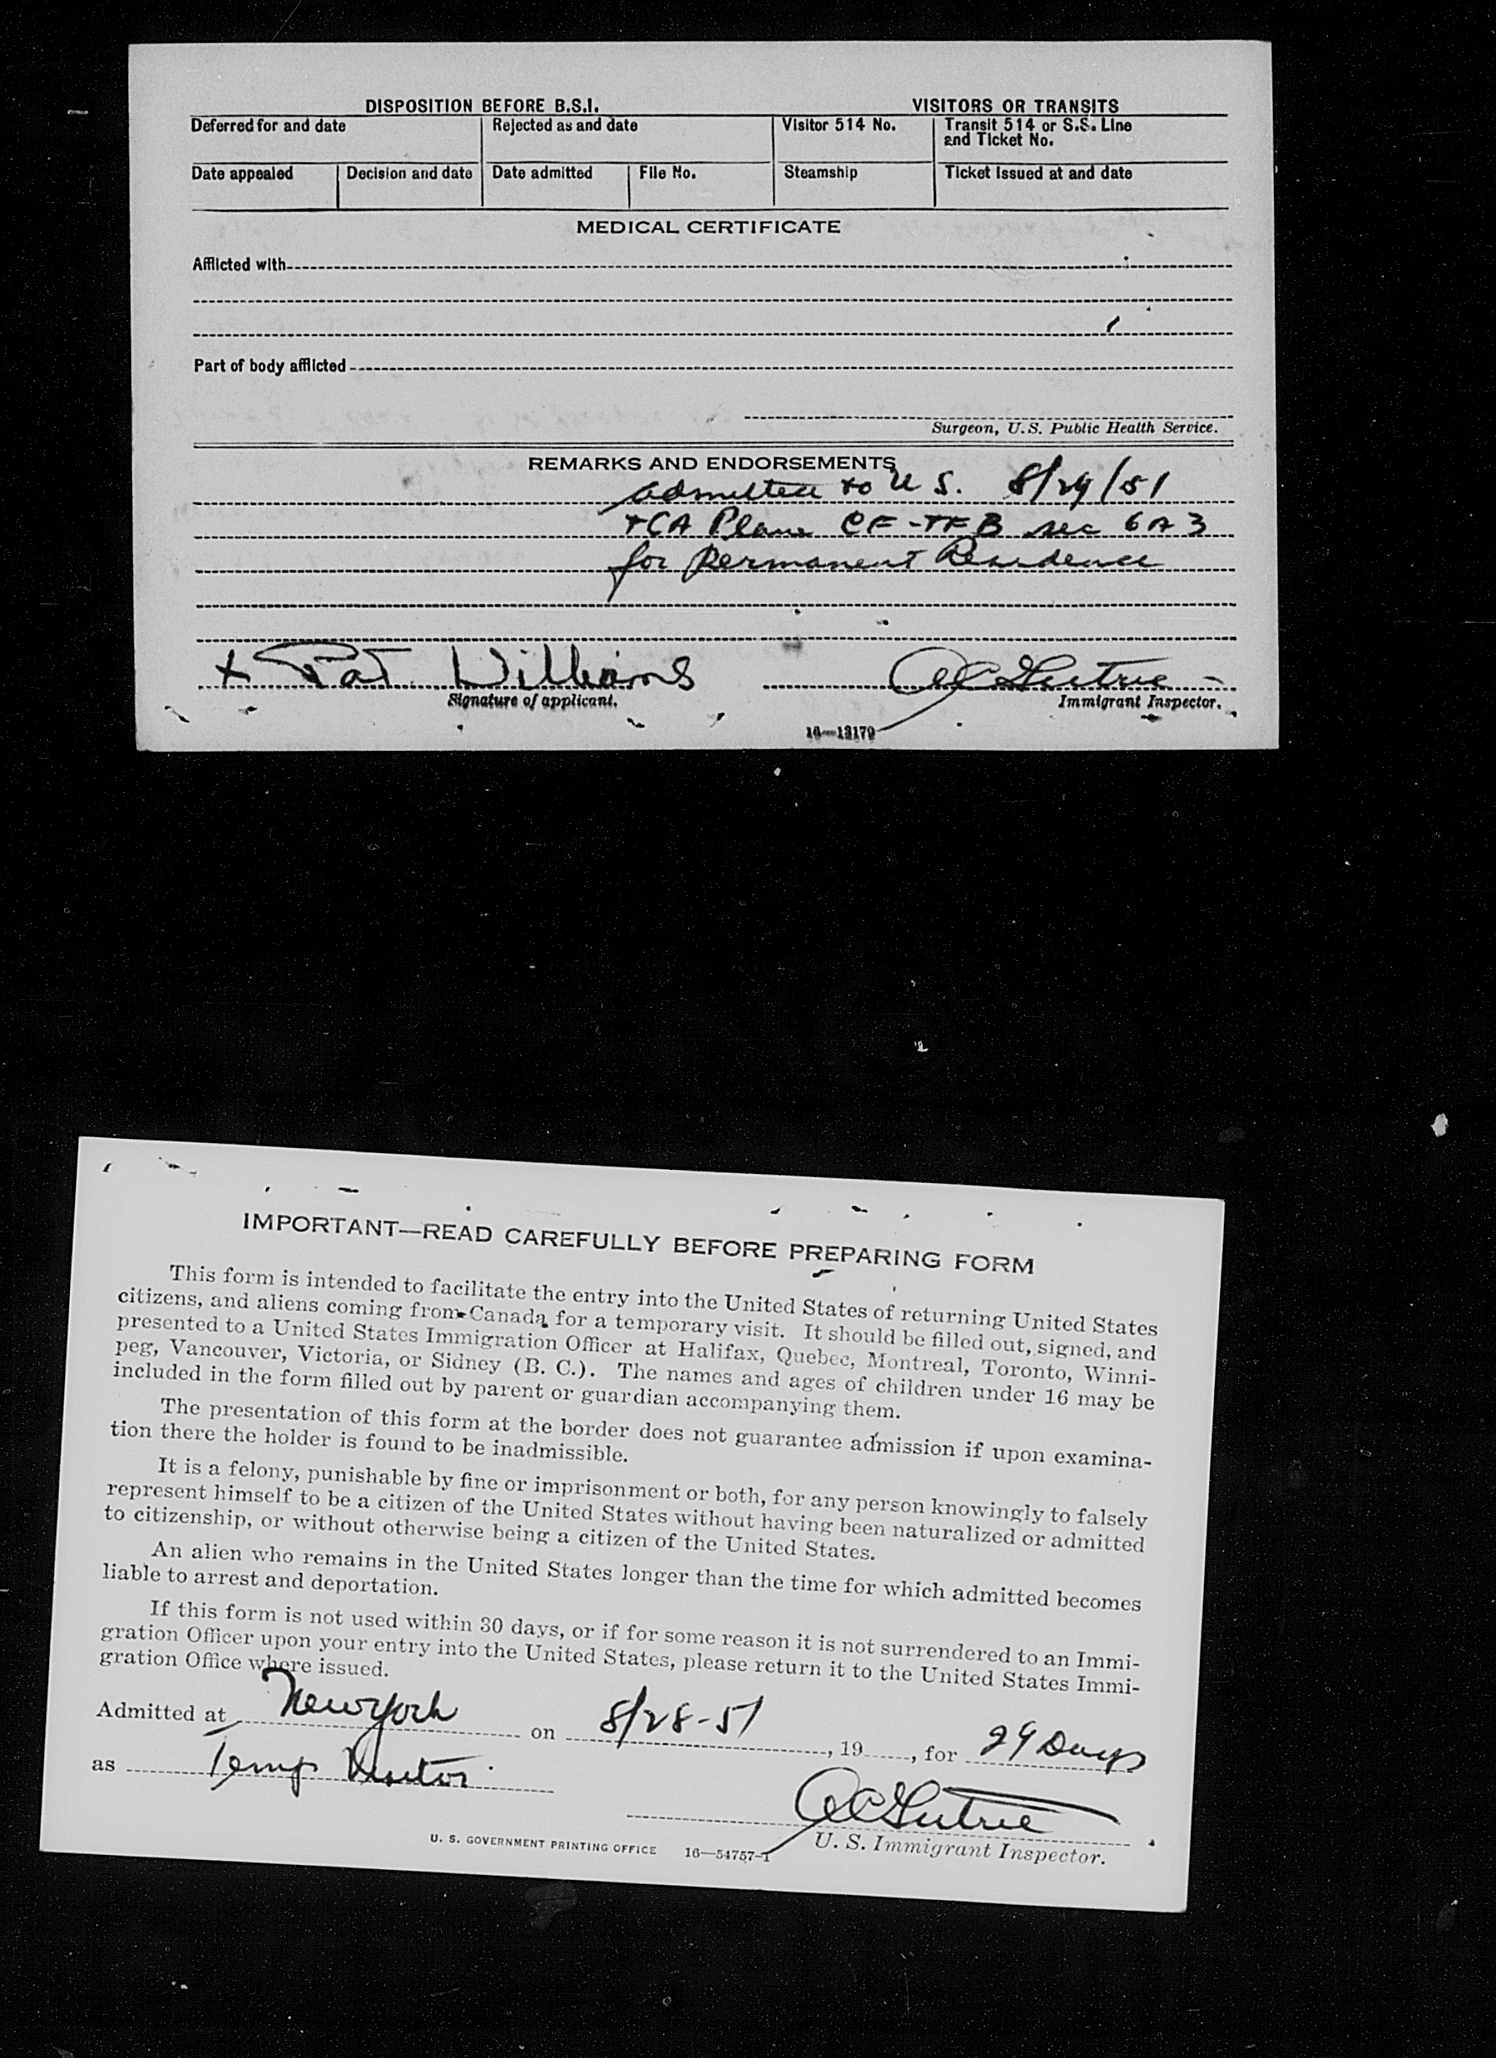 DISPOSITION BEFORE B.S.I. VISITORS OR TRANSITS
Deferred for and date Rejected as and date Visitor 514 No. Transit 514 or S.S. Line
and Ticket No.
Date appealed Decision and date Date admitted File No. Steamship Ticket issued at and date
MEDICAL CERTIFICATE
Afflicted with
Part of body afflicted
Surgeon, U.S. Public Health Service.
REMARKS AND ENDORSEMENTS
admitted to U S. 8/29/51
TCA Plane CF-TFB sec 6A3
for Permanent Residence
x Pat Williams
Signature of applicant. Immigrant Inspector.
16—13179
IMPORTANT—READ CAREFULLY BEFORE PREPARING FORM
This form is intended to facilitate the entry into the United States of returning United States
citizens, and aliens coming from Canada for a temporary visit. It should be filled out, signed, and
presented to a United States Immigration Officer at Halifax, Quebec, Montreal, Toronto, Winni-
peg, Vancouver, Victoria, or Sidney (B. C.). The names and ages of children under 16 may be
included in the form filled out by parent or guardian accompanying them.
The presentation of this form at the border does not guarantee admission if upon examina-
tion there the holder is found to be inadmissible.
It is a felony, punishable by fine or imprisonment or both, for any person knowingly to falsely
represent himself to be a citizen of the United States without having been naturalized or admitted
to citizenship, or without otherwise being a citizen of the United States.
An alien who remains in the United States longer than the time for which admitted becomes
liable to arrest and deportation.
If this form is not used within 30 days, or if for some reason it is not surrendered to an Immi-
gration Officer upon your entry into the United States, please return it to the United States Immi-
gration Office where issued.
Admitted at New York on 8/28-51, 19, for 29 Days
as Temp Visitor
U. S. Immigrant Inspector.
U. S. GOVERNMENT PRINTING OFFICE 16—54757-1